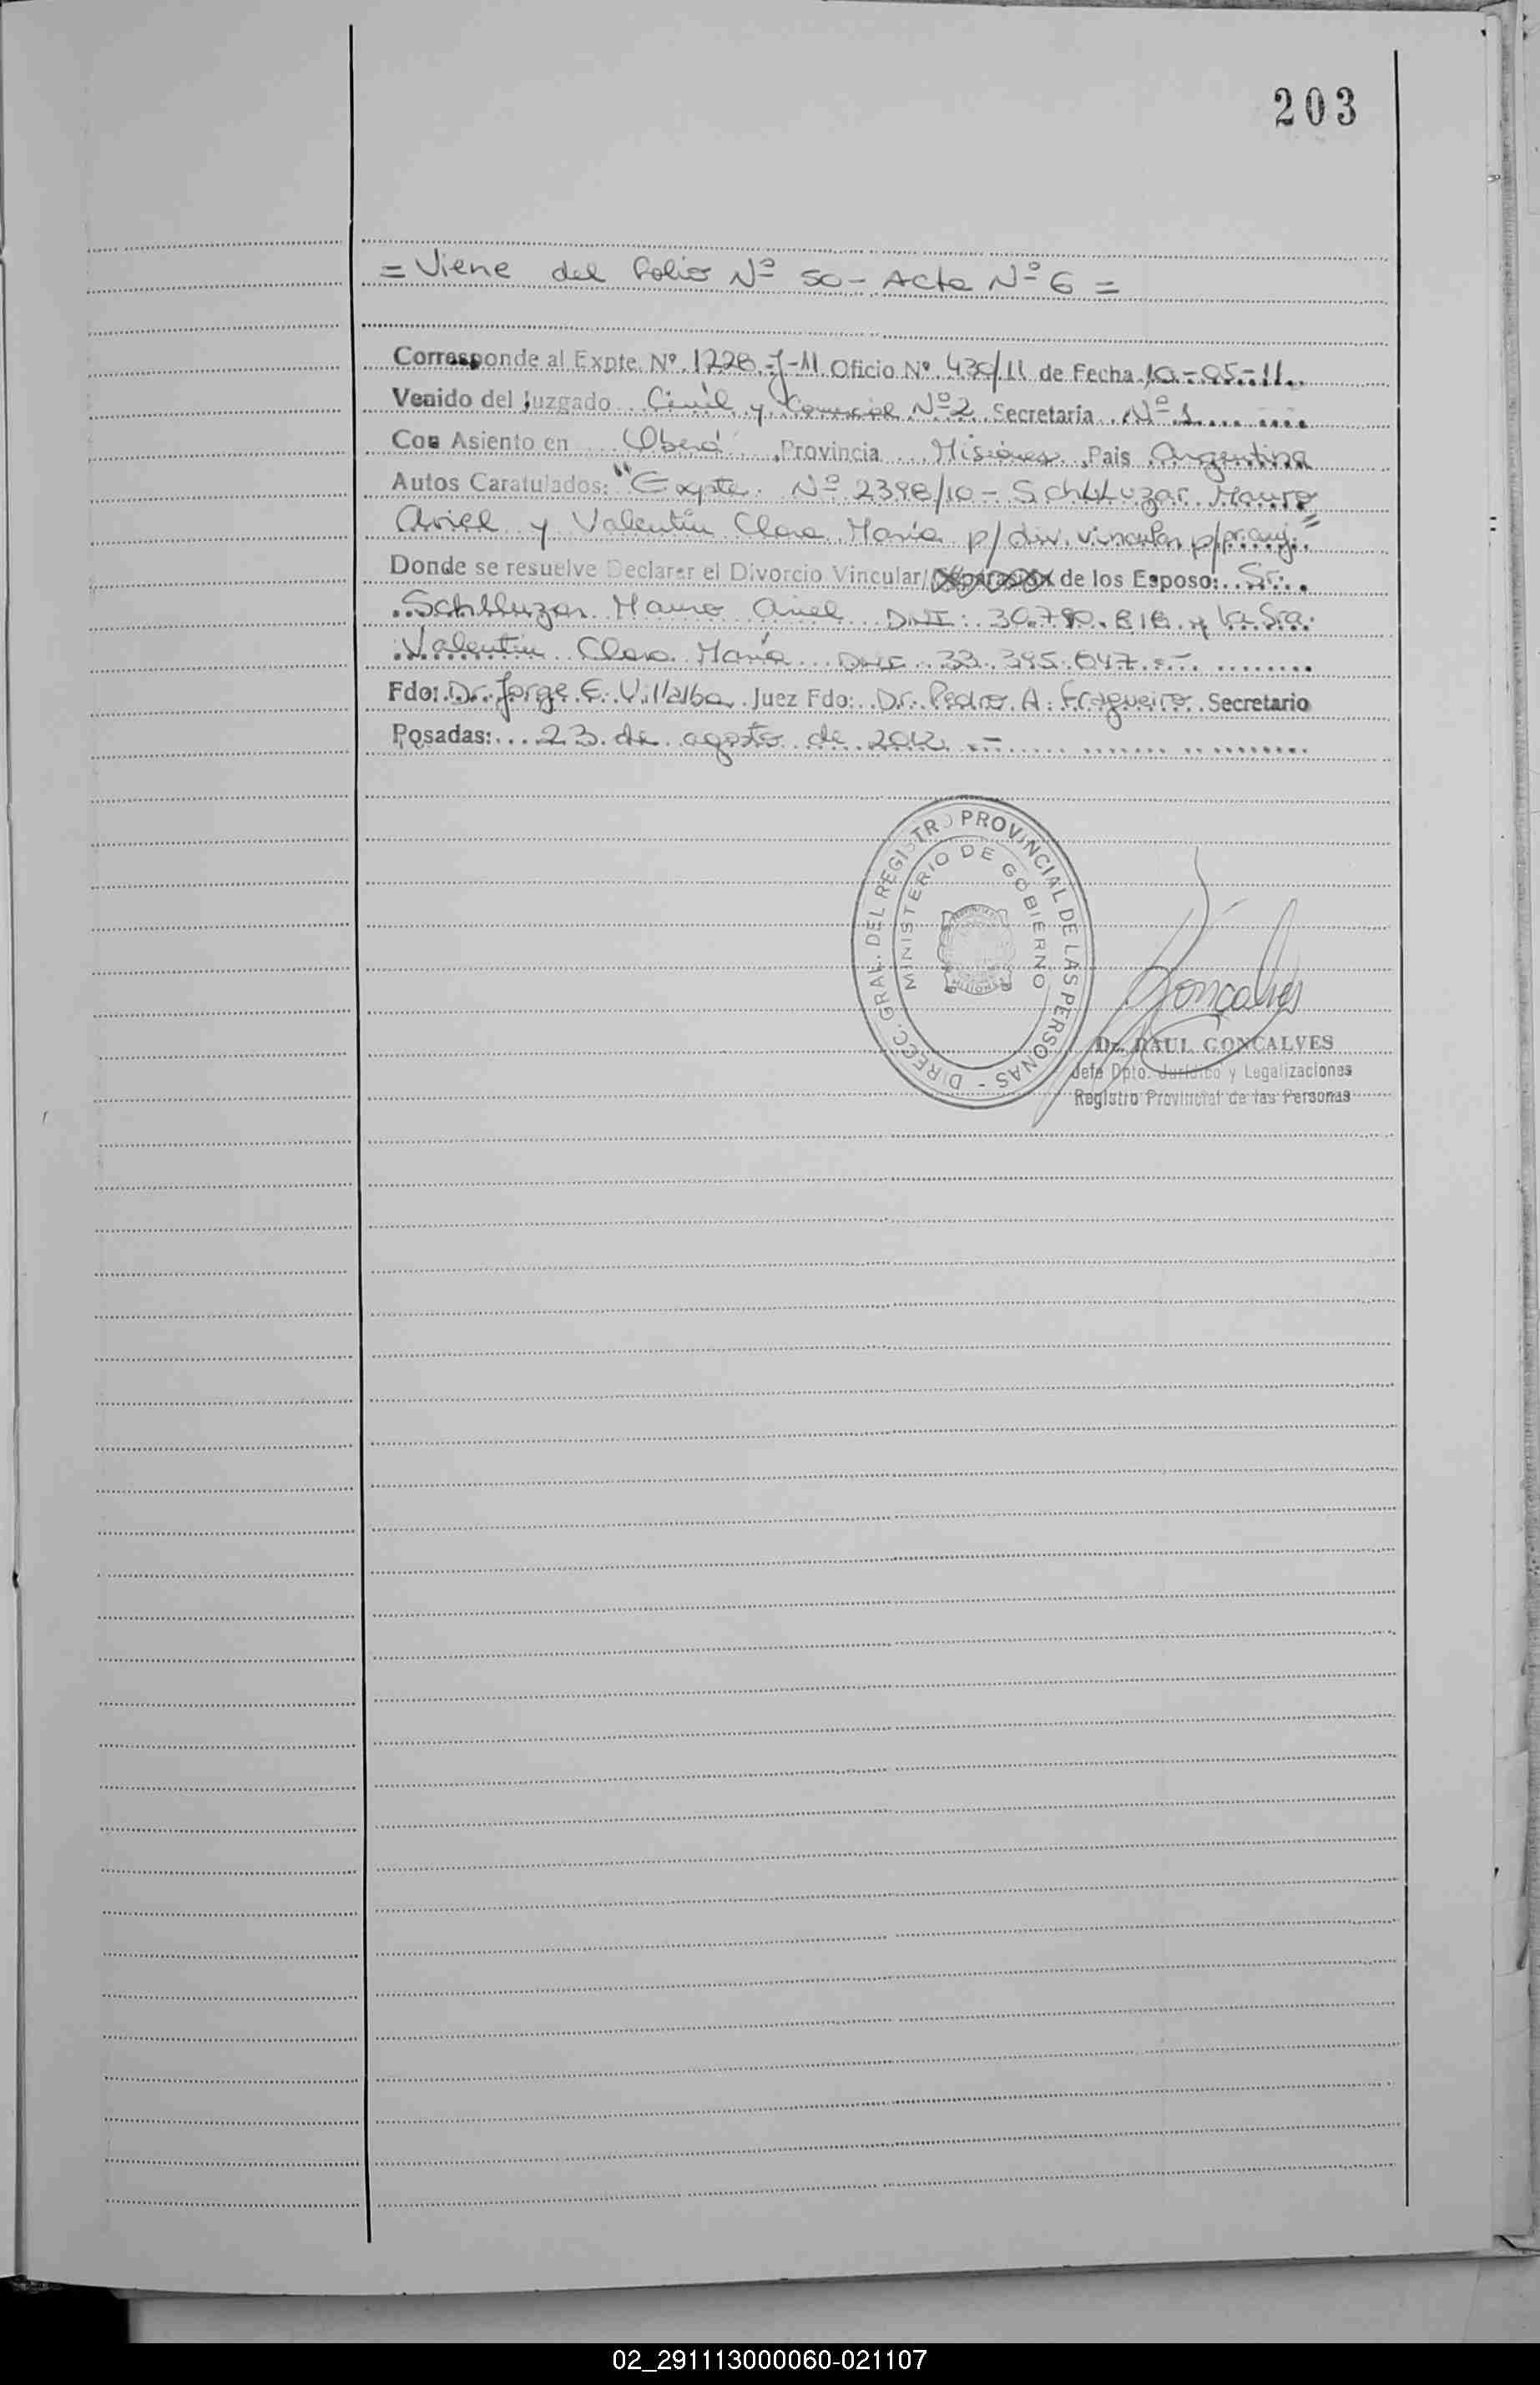 203
= Viene del folio Nº 50 - Acta Nº 6 =
Corresponde al Expte. Nº 1228-J-11 Oficio Nº 430/11 de Fecha 10-05-11
Venido del Juzgado Civil y Comercial Nº 2 Secretaría Nº 1
Con Asiento en Oberá, Provincia Misiones, Pais Argentina
Autos Caratulados: "Expte. Nº 2398/10 - Schlluzar Mauro
Ariel y Valentin Clara María p/ div. vincular p/pr. conj."
Donde se resuelve Declarar el Divorcio Vincular/ de los Esposo: Sr.
Schlluzar Mauro Ariel DNI: 30.790.818 y la Sra.
Valentin Clara María DNI 33.395.647 =
Fdo: Dr. Jorge E. Villalba Juez Fdo: Dr. Pedro A. Fragueiro Secretario
Posadas: 23 de agosto de 2012 =
DIRECC. GRAL. DEL REGISTRO PROVINCIAL DE LAS PERSONAS -
MINISTERIO DE GOBIERNO
MISIONES
Gonçalves
Dr. RAUL GONCALVES
Jefe Dpto. Jurídico y Legalizaciones
Registro Provincial de las Personas
02_291113000060-021107